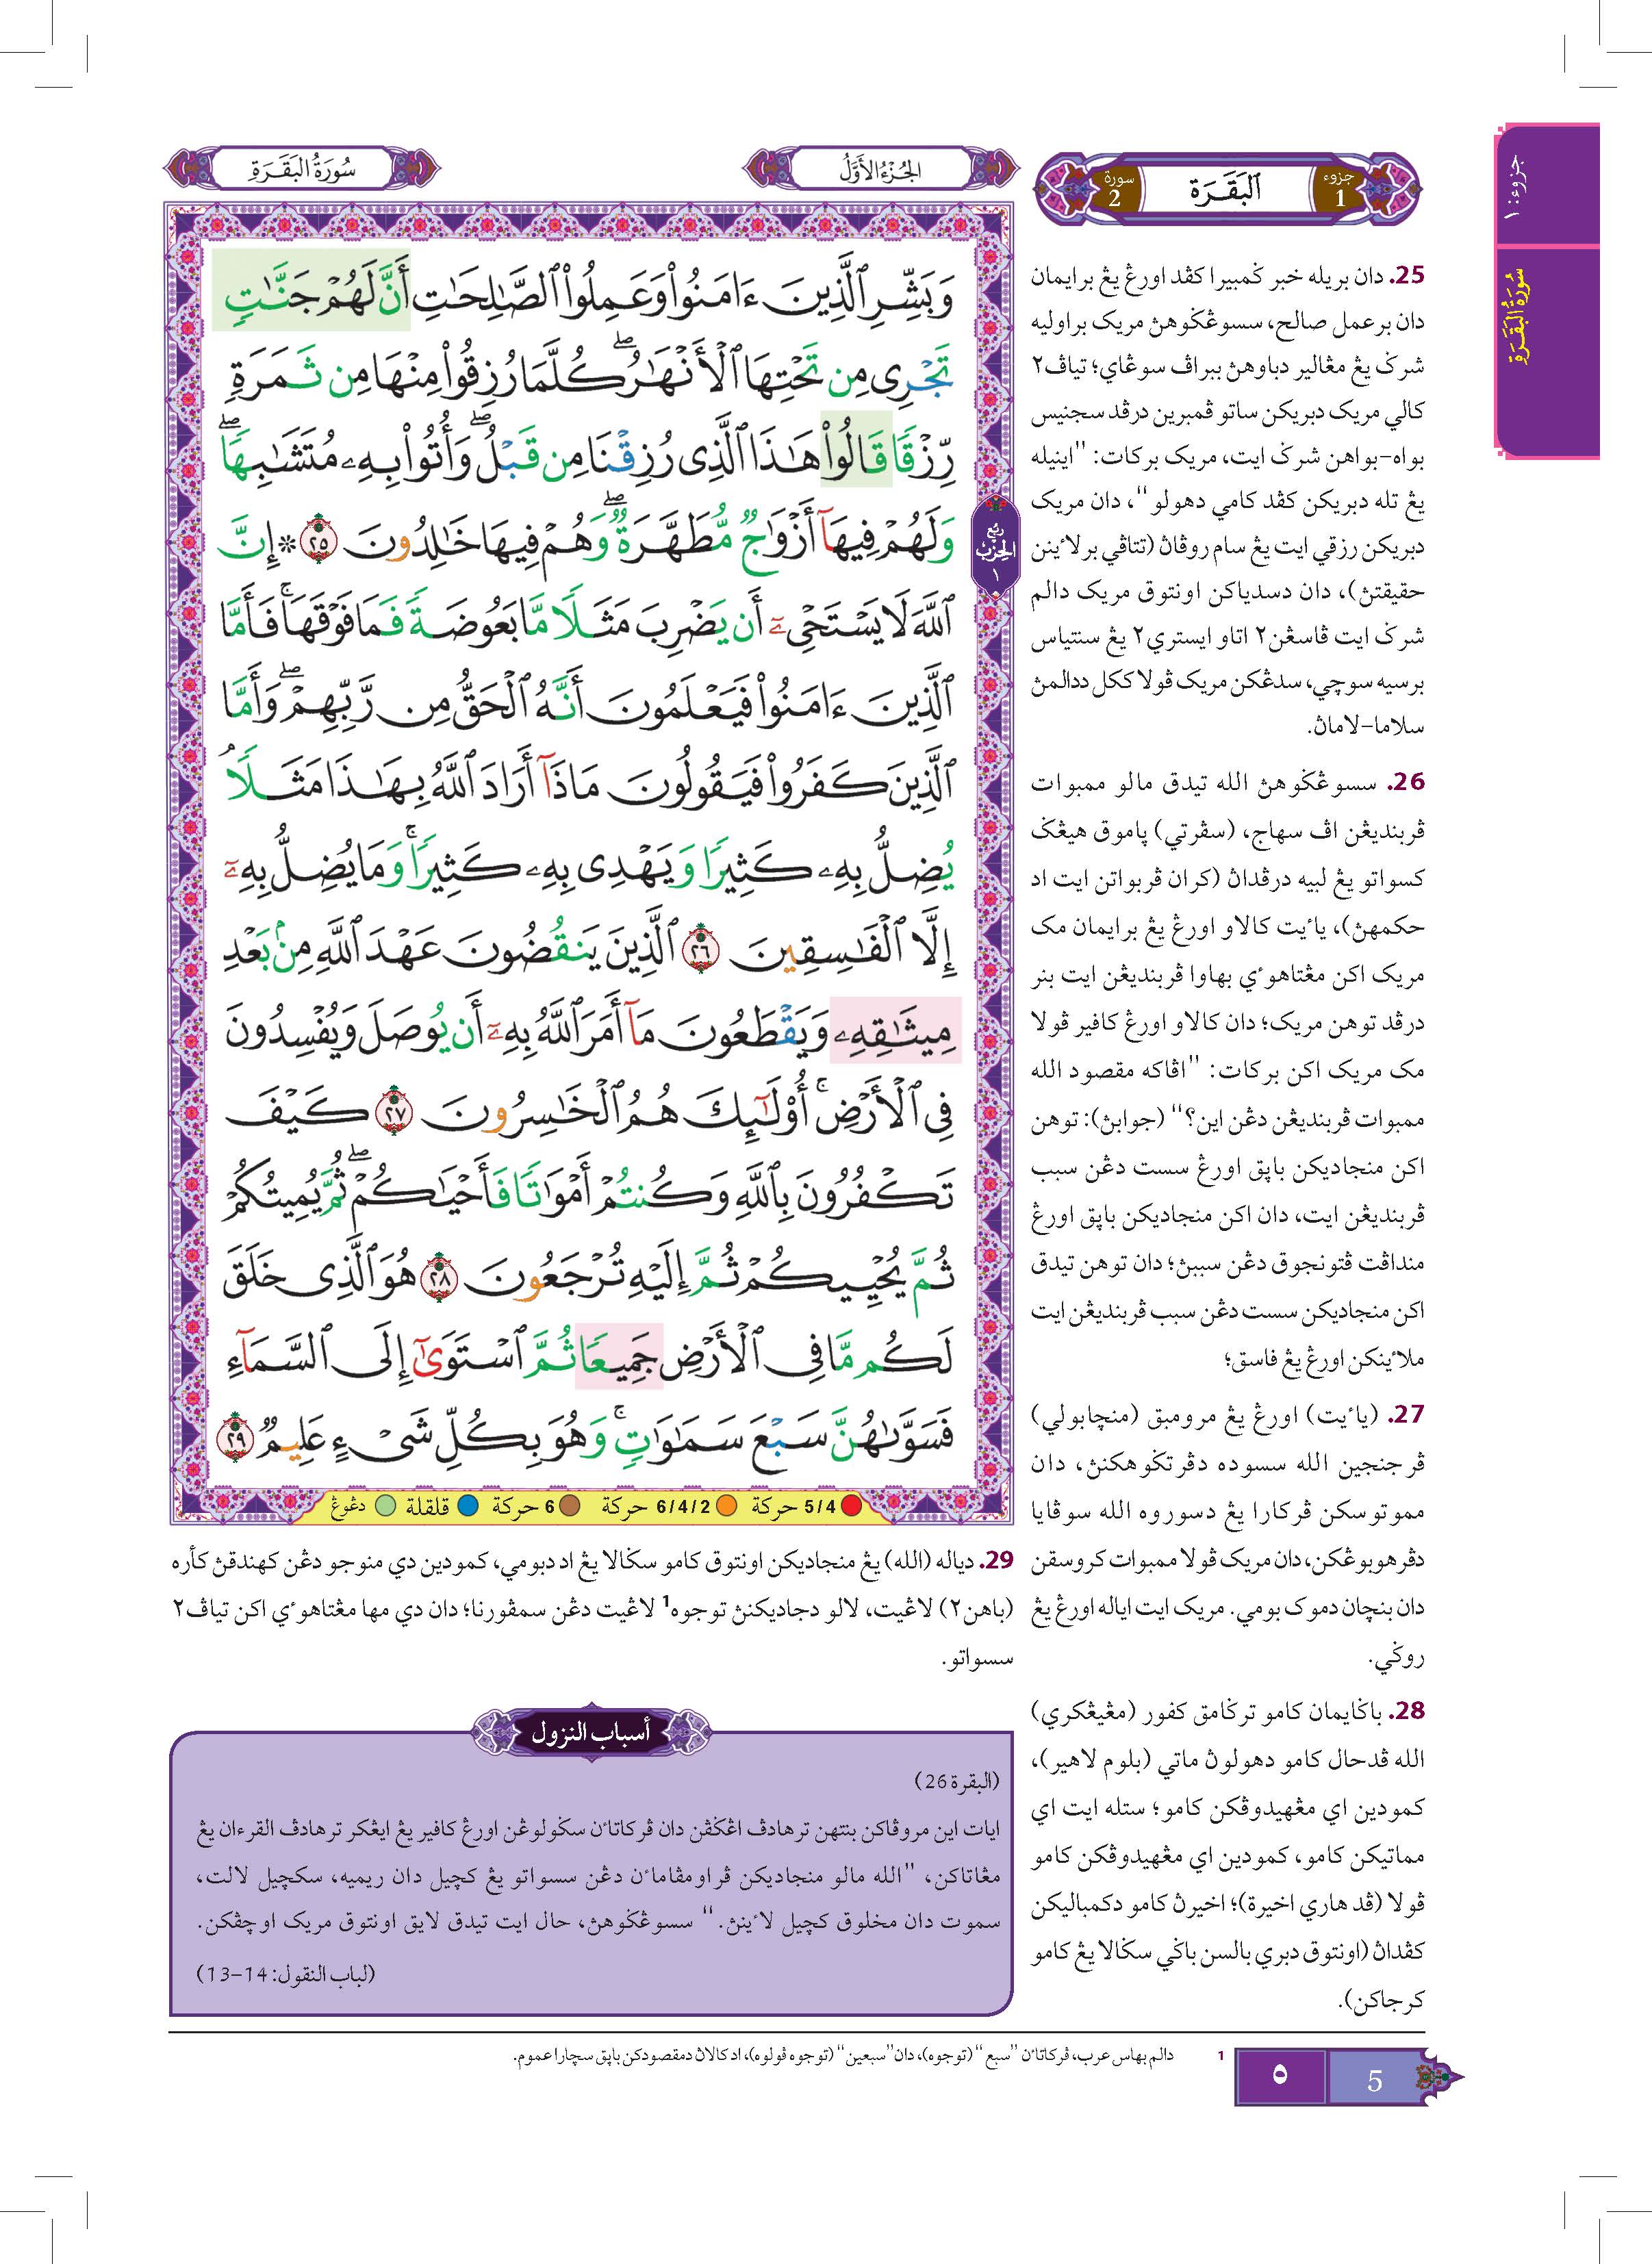 سُورَةُ البَقَرَةِ
الجُزْءُ الأَوَّلُ
سورة 2
اَلْبَقَرَة
جزوء 1
جزوء: ١
سُورَةُ البَقَرَةِ
وَبَشِّرِ ٱلَّذِينَ ءَامَنُوا۟ وَعَمِلُوا۟ ٱلصَّـٰلِحَـٰتِ أَنَّ لَهُمْ جَنَّـٰتٍ
تَجْرِى مِن تَحْتِهَا ٱلْأَنْهَـٰرُ ۖ كُلَّمَا رُزِقُوا۟ مِنْهَا مِن ثَمَرَةٍ
رِّزْقًا قَالُوا۟ هَـٰذَا ٱلَّذِى رُزِقْنَا مِن قَبْلُ ۖ وَأُتُوا۟ بِهِۦ مُتَشَـٰبِهًا ۖ
وَلَهُمْ فِيهَآ أَزْوَٰجٌ مُّطَهَّرَةٌ ۖ وَهُمْ فِيهَا خَـٰلِدُونَ ٢٥ * إِنَّ
ٱللَّهَ لَا يَسْتَحْىِۦٓ أَن يَضْرِبَ مَثَلًا مَّا بَعُوضَةً فَمَا فَوْقَهَا ۚ فَأَمَّا
ٱلَّذِينَ ءَامَنُوا۟ فَيَعْلَمُونَ أَنَّهُ ٱلْحَقُّ مِن رَّبِّهِمْ ۖ وَأَمَّا
ٱلَّذِينَ كَفَرُوا۟ فَيَقُولُونَ مَاذَآ أَرَادَ ٱللَّهُ بِهَـٰذَا مَثَلًا ۘ
يُضِلُّ بِهِۦ كَثِيرًا وَيَهْدِى بِهِۦ كَثِيرًا ۚ وَمَا يُضِلُّ بِهِۦٓ
إِلَّا ٱلْفَـٰسِقِينَ ٢٦ ٱلَّذِينَ يَنقُضُونَ عَهْدَ ٱللَّهِ مِنۢ بَعْدِ
مِيثَـٰقِهِۦ وَيَقْطَعُونَ مَآ أَمَرَ ٱللَّهُ بِهِۦٓ أَن يُوصَلَ وَيُفْسِدُونَ
فِى ٱلْأَرْضِ ۚ أُو۟لَـٰٓئِكَ هُمُ ٱلْخَـٰسِرُونَ ٢٧ كَيْفَ
تَكْفُرُونَ بِٱللَّهِ وَكُنتُمْ أَمْوَٰتًا فَأَحْيَـٰكُمْ ۖ ثُمَّ يُمِيتُكُمْ
ثُمَّ يُحْيِيكُمْ ثُمَّ إِلَيْهِ تُرْجَعُونَ ٢٨ هُوَ ٱلَّذِى خَلَقَ
لَكُم مَّا فِى ٱلْأَرْضِ جَمِيعًا ثُمَّ ٱسْتَوَىٰٓ إِلَى ٱلسَّمَآءِ
فَسَوَّىٰهُنَّ سَبْعَ سَمَـٰوَٰتٍ ۚ وَهُوَ بِكُلِّ شَىْءٍ عَلِيمٌ ٢٩
ربع
الحزب
١
5/4 حركة 6/4/2 حركة 6 حركة قلقلة دڠوڠ
25. دان بريله خبر ݢمبيرا كڤد اورڠ يڠ برايمان
دان برعمل صالح، سسوڠݢوهڽ مريک براوليه
شرݢ يڠ مڠالير دباوهڽ ببراڤ سوڠاي؛ تياڤ٢
كالي مريک دبريكن ساتو ڤمبرين درڤد سجنيس
بواه-بواهن شرݢ ايت، مريک بركات: "اينيله
يڠ تله دبريكن كڤد كامي دهولو"، دان مريک
دبريكن رزقي ايت يڠ سام روڤاڽ (تتاڤي برلاءينن
حقيقتڽ)، دان دسدياكن اونتوق مريک دالم
شرݢ ايت ڤاسڠن٢ اتاو ايستري٢ يڠ سنتياس
برسيه سوچي، سدڠكن مريک ڤولا ككل ددالمڽ
سلاما-لاماڽ.
26. سسوڠݢوهڽ الله تيدق مالو ممبوات
ڤربنديڠن اڤ سهاج، (سڤرتي) ڽاموق هيڠݢ
كسواتو يڠ لبيه درڤداڽ (كران ڤربواتن ايت اد
حكمهڽ)، ياءيت كالاو اورڠ يڠ برايمان مک
مريک اكن مڠتاهوءي بهاوا ڤربنديڠن ايت بنر
درڤد توهن مريک؛ دان كالاو اورڠ كافير ڤولا
مک مريک اكن بركات: "اڤاكه مقصود الله
ممبوات ڤربنديڠن دڠن اين؟" (جوابڽ): توهن
اكن منجاديكن باڽق اورڠ سست دڠن سبب
ڤربنديڠن ايت، دان اكن منجاديكن باڽق اورڠ
منداڤت ڤتونجوق دڠن سببڽ؛ دان توهن تيدق
اكن منجاديكن سست دڠن سبب ڤربنديڠن ايت
ملاءينكن اورڠ يڠ فاسق؛
27. (ياءيت) اورڠ يڠ مرومبق (منچابولي)
ڤرجنجين الله سسوده دڤرتݢوهكنڽ، دان
مموتوسكن ڤركارا يڠ دسوروه الله سوڤايا
دڤرهوبوڠكن، دان مريک ڤولا ممبوات كروسقن
دان بنچان دموک بومي. مريک ايت اياله اورڠ يڠ
روݢي.
28. باݢايمان كامو ترݢامق كفور (مڠيڠكري)
الله ڤدحال كامو دهولوڽ ماتي (بلوم لاهير)،
كمودين اي مڠهيدوڤكن كامو؛ ستله ايت اي
مماتيكن كامو، كمودين اي مڠهيدوڤكن كامو
ڤولا (ڤد هاري اخيرة)؛ اخيرڽ كامو دكمباليكن
كڤداڽ (اونتوق دبري بالسن باݢي سݢالا يڠ كامو
كرجاكن).
29. دياله (الله) يڠ منجاديكن اونتوق كامو سݢالا يڠ اد دبومي، كمودين دي منوجو دڠن كهندقڽ كأره
(باهن٢) لاڠيت، لالو دجاديكنڽ توجوه1 لاڠيت دڠن سمڤورنا؛ دان دي مها مڠتاهوءي اكن تياڤ٢
سسواتو.
أسباب النزول
(البقرة 26)
ايات اين مروڤاكن بنتهن ترهادڤ اڠݢڤن دان ڤركاتاءن سݢولوڠن اورڠ كافير يڠ ايڠكر ترهادڤ القرءان يڠ
مڠاتاكن، "الله مالو منجاديكن ڤراومڤاماءن دڠن سسواتو يڠ كچيل دان ريميه، سكچيل لالت،
سموت دان مخلوق كچيل لاءينڽ." سسوڠݢوهڽ، حال ايت تيدق لايق اونتوق مريک اوچڤكن.
(لباب النقول: 14-13)
1 دالم بهاس عرب، ڤركاتاءن "سبع" (توجوه)، دان "سبعين" (توجوه ڤولوه)، ادكالاڽ دمقصودكن باڽق سچارا عموم.
٥
5